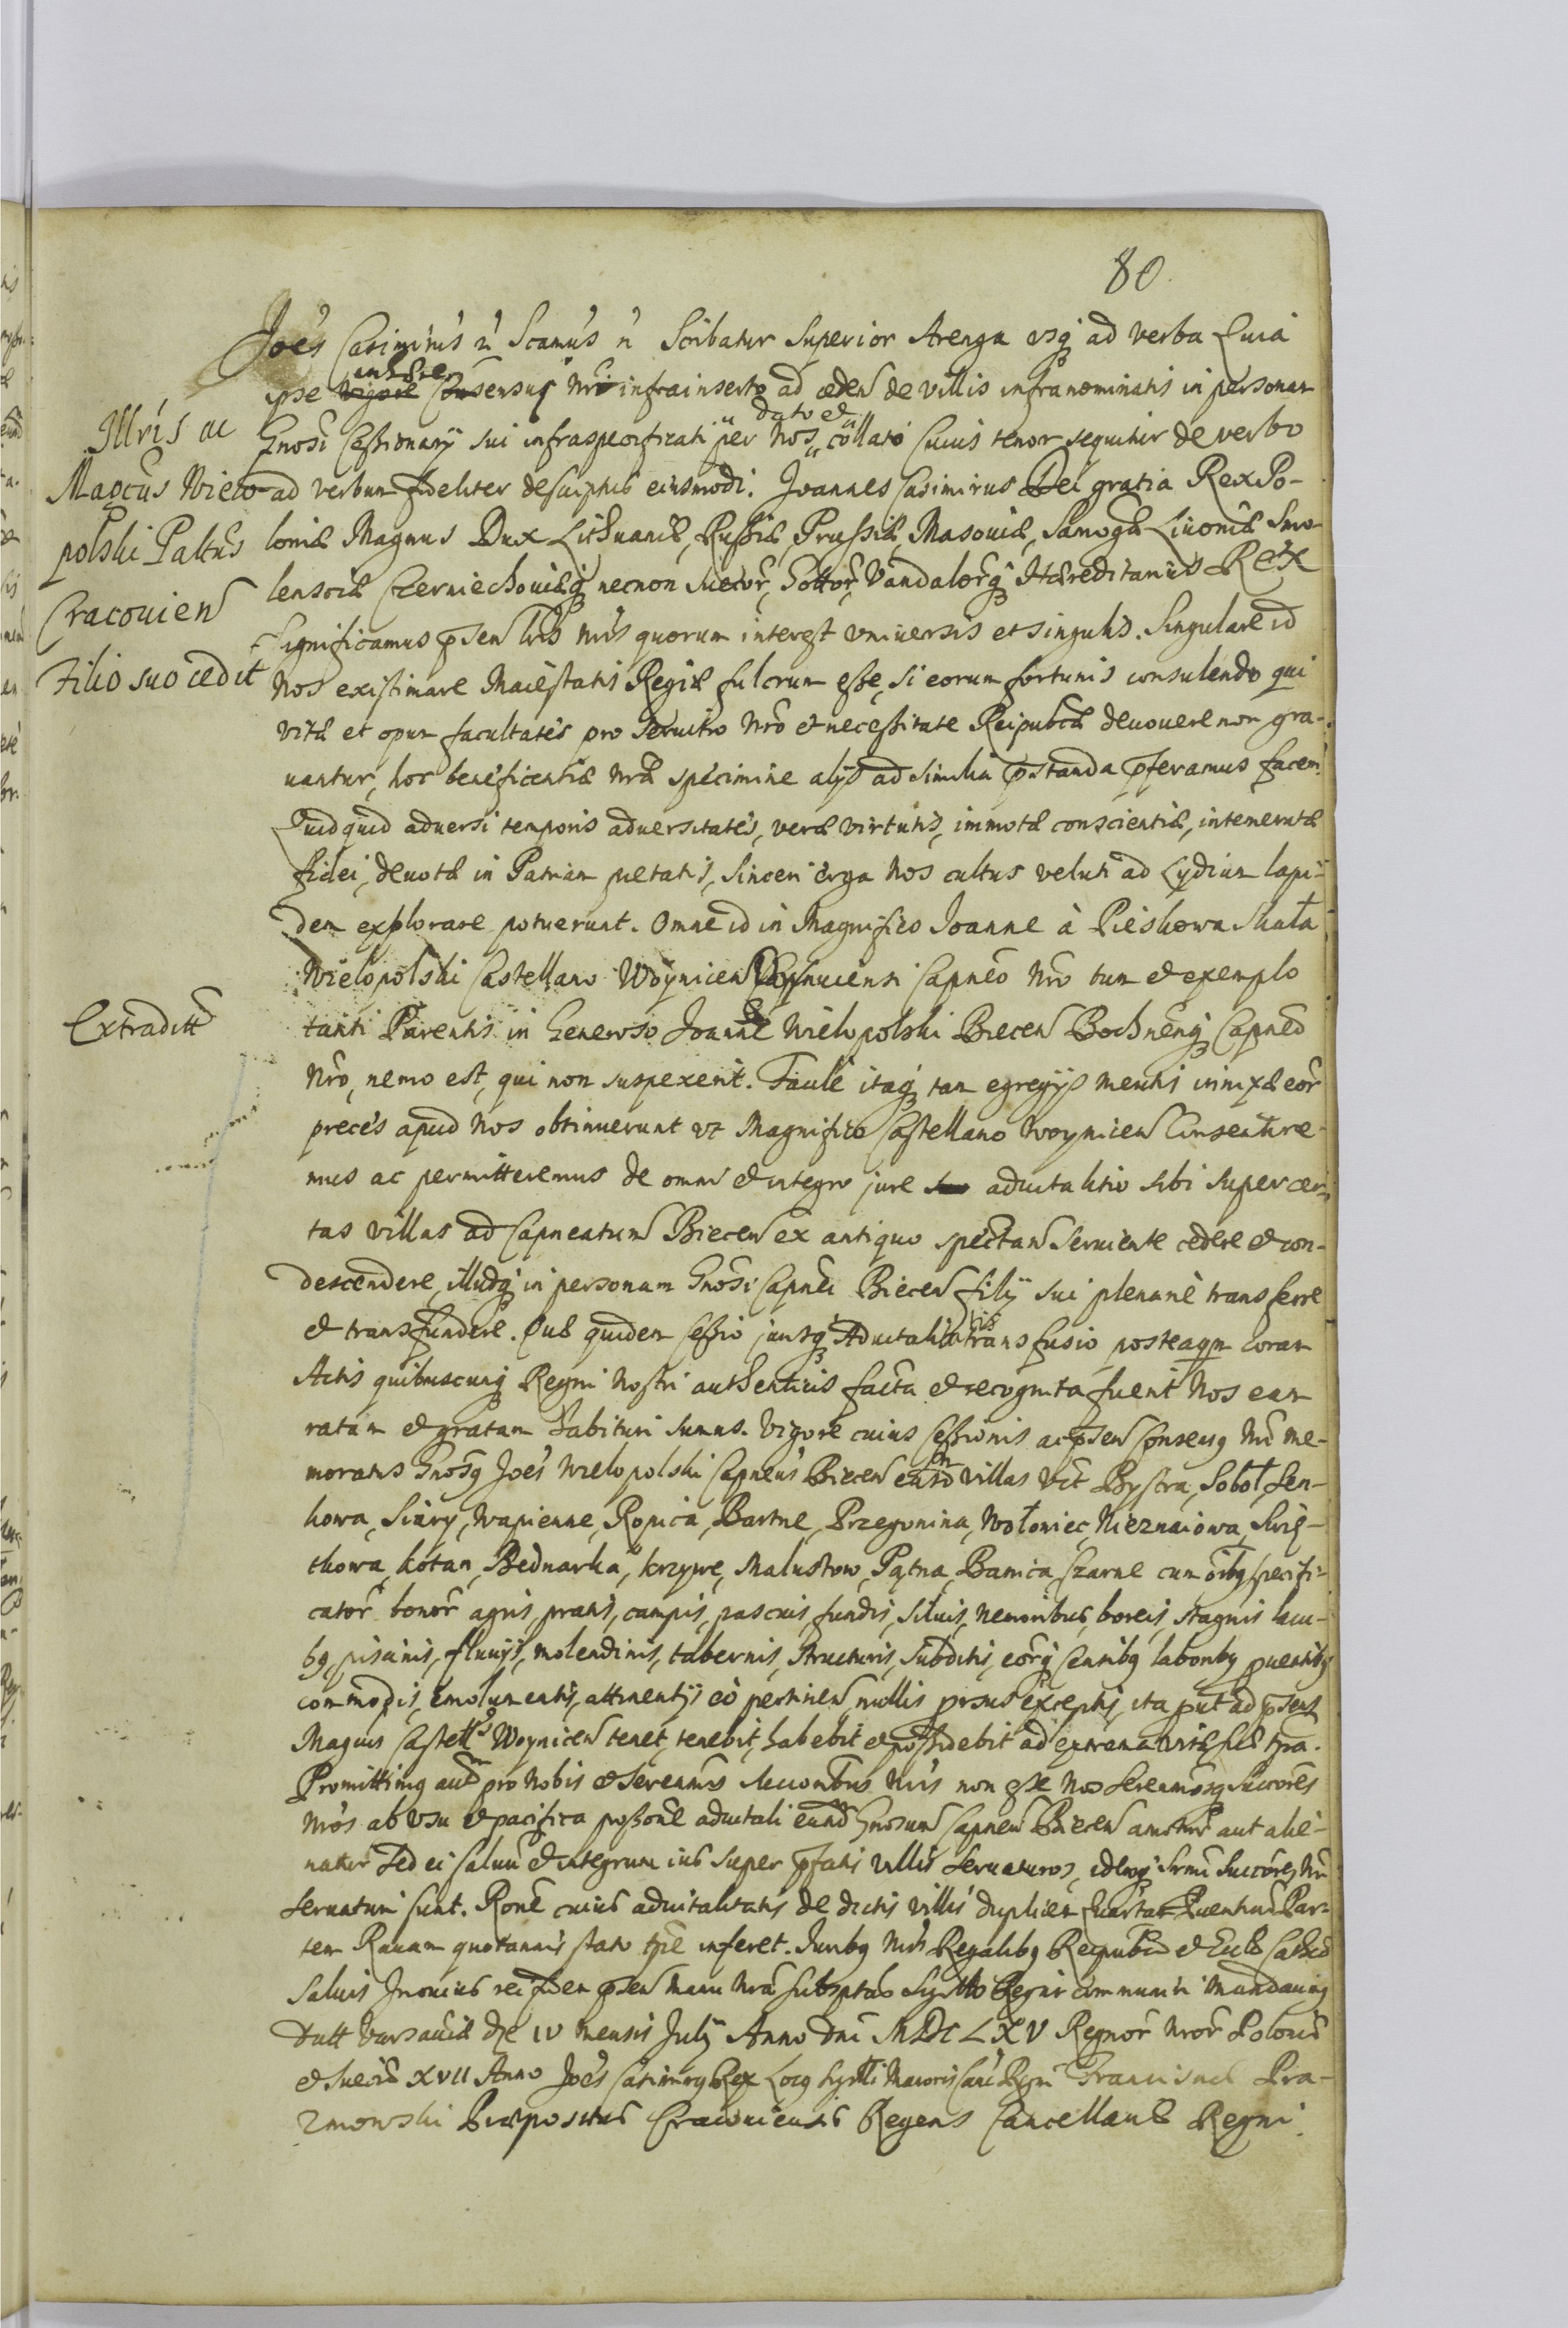 80
Joes Casimirus n Scamus n Scribatur Superior Arenga vsq ad verba Quia
authore
ipse vigore Consensus Nri infrainserto ad ceden de villis infranominatis in personam
dato et
Gnosi Cessionarij sui infraspecificati per Nos collato Cuius tenor sequitur de verbo
Illris ac
Magcus Wielo-
polski Paltus
Cracouien
Filio suo cedit
ad verbum fideliter descriptus eiusmodi. Joannes Casimirus Dei gratia Rex Po-
loniæ Magnus Dux Lithuaniæ, Russiæ, Prussiæ, Masouiæ, Samogæ Liuoniæ Smo-
lensciæ Czerniechouiæq necnon Suecor, Gottor, Vandalorq Hæreditarius Rex
Significamus psen lris nris quorum interest vniuersis et singulis. Singulare id
Nos existimare Maiestatis Regiæ fulcrum esse, si eorum fortunis consulendo qui
vitæ et opum facultates pro seruitio Nro et necessitate Reipubcæ deuouere non gra-
uantur, hoc beneficentiæ nræ specimine alijs ad similia pstanda pferamus facem.
Quidquid aduersi temporis aduersitates, veræ virtutis, immotæ conscientiæ, intemeratæ
fidei, deuotæ in Patriam pietatis, sinceri erga Nos cultus veluti ad Lydium lapi-
dem explorare potuerunt. Omne id in Magnifico Joanne à Pieskowa Skała
Wielopolski Castellano Woynicen Capneo Nro tum et exemplo
Extraditt
tanti Parentis in Generoso Joanne Wielopolski Biecen Bochnenq Capneo
Nro, nemo est, qui non suspexerit. Facile itaq tam egregijs meritis innixæ eor
preces apud Nos obtinuerunt vt Magnifico Castellano Woynicen Consentire-
mus ac permitteremus de omni et integro jure aduitalitio sibi super cer-
tas villas ad Capneatum Biecen ex antiquo spectan seruiente cedere et con-
descendere, illudq in personam Gnosi Capnei Biecen filij sui plenarie transferre
et transfundere. Quæ quidem Cessio jurisq Aduitalitatis transfusio posteaqm coram
Actis quibuscunq Regni Nostri authenticis facta et recognita fuerit Nos eam
ratam et gratam habituri sumus. Vigore cuius Cessionis ac psen Consensq Nri me-
moratus Gnosq Joes Wielopolski Capneus Biecen easd villas vtt Bystra, Sobol, Sen-
kowa, Siary, Wapienne, Ropica, Bartne, Przegonina, Wołoniec, Nieznaiowa, Swię-
tkowa, Kotan, Bednarka, krzywe, Malustow, Pętna, Banica, Czarne cum oibq specifi-
cator bonor agris, pratis, campis, pascuis, fundis, siluis, nemoribus, boreis, stagnis lacu-
bq, piscinis, fluuijs, molendinis, tabernis, structuris, subditis, eorq Censibq laboribq puentibq
commodis, emolumentis, attinentijs eò pertinen nullis prsus exceptis, ita put ad psens
Magcus Castells Woynicen tenet, tenebit, habebit et possidebit ad extrema vitæ suæ tpra.
Promittimq aut pro Nobis et Serenmis Successoribus Nris non esse Nos Serenmosq Succores
Nros ab vsu et pacifica possone aduitali eund Gnosum Capneu Biecen amoturos aut alie-
naturos Sed ei saluu et integrum ius super pfatis villis seruaturos, idemq Srmi Succores Nri
seruaturi sunt. Rone cuius aduitalitatis de dictis villis duplicem quartæ Puentuu Par-
tem Rauam quotannis stato tpre inferet. Juribq Nris Regalibq Reipubcæ et Eccl Cathol
saluis In cuius rei fidem psen manu Nra subsptas Sygillo Regni communiri Mandauimq
Datt Varsauiæ die IV mensis Julij Anno Dni MDCLXV Regnor Nror Poloniæ
et Sueciæ XVII Anno Joes Casimirq Rex Locq Sygilli Maioris Canc Regni Franciscus Pra-
zmowski Præpositus Cracouiensis Regens Cancellariæ Regni.